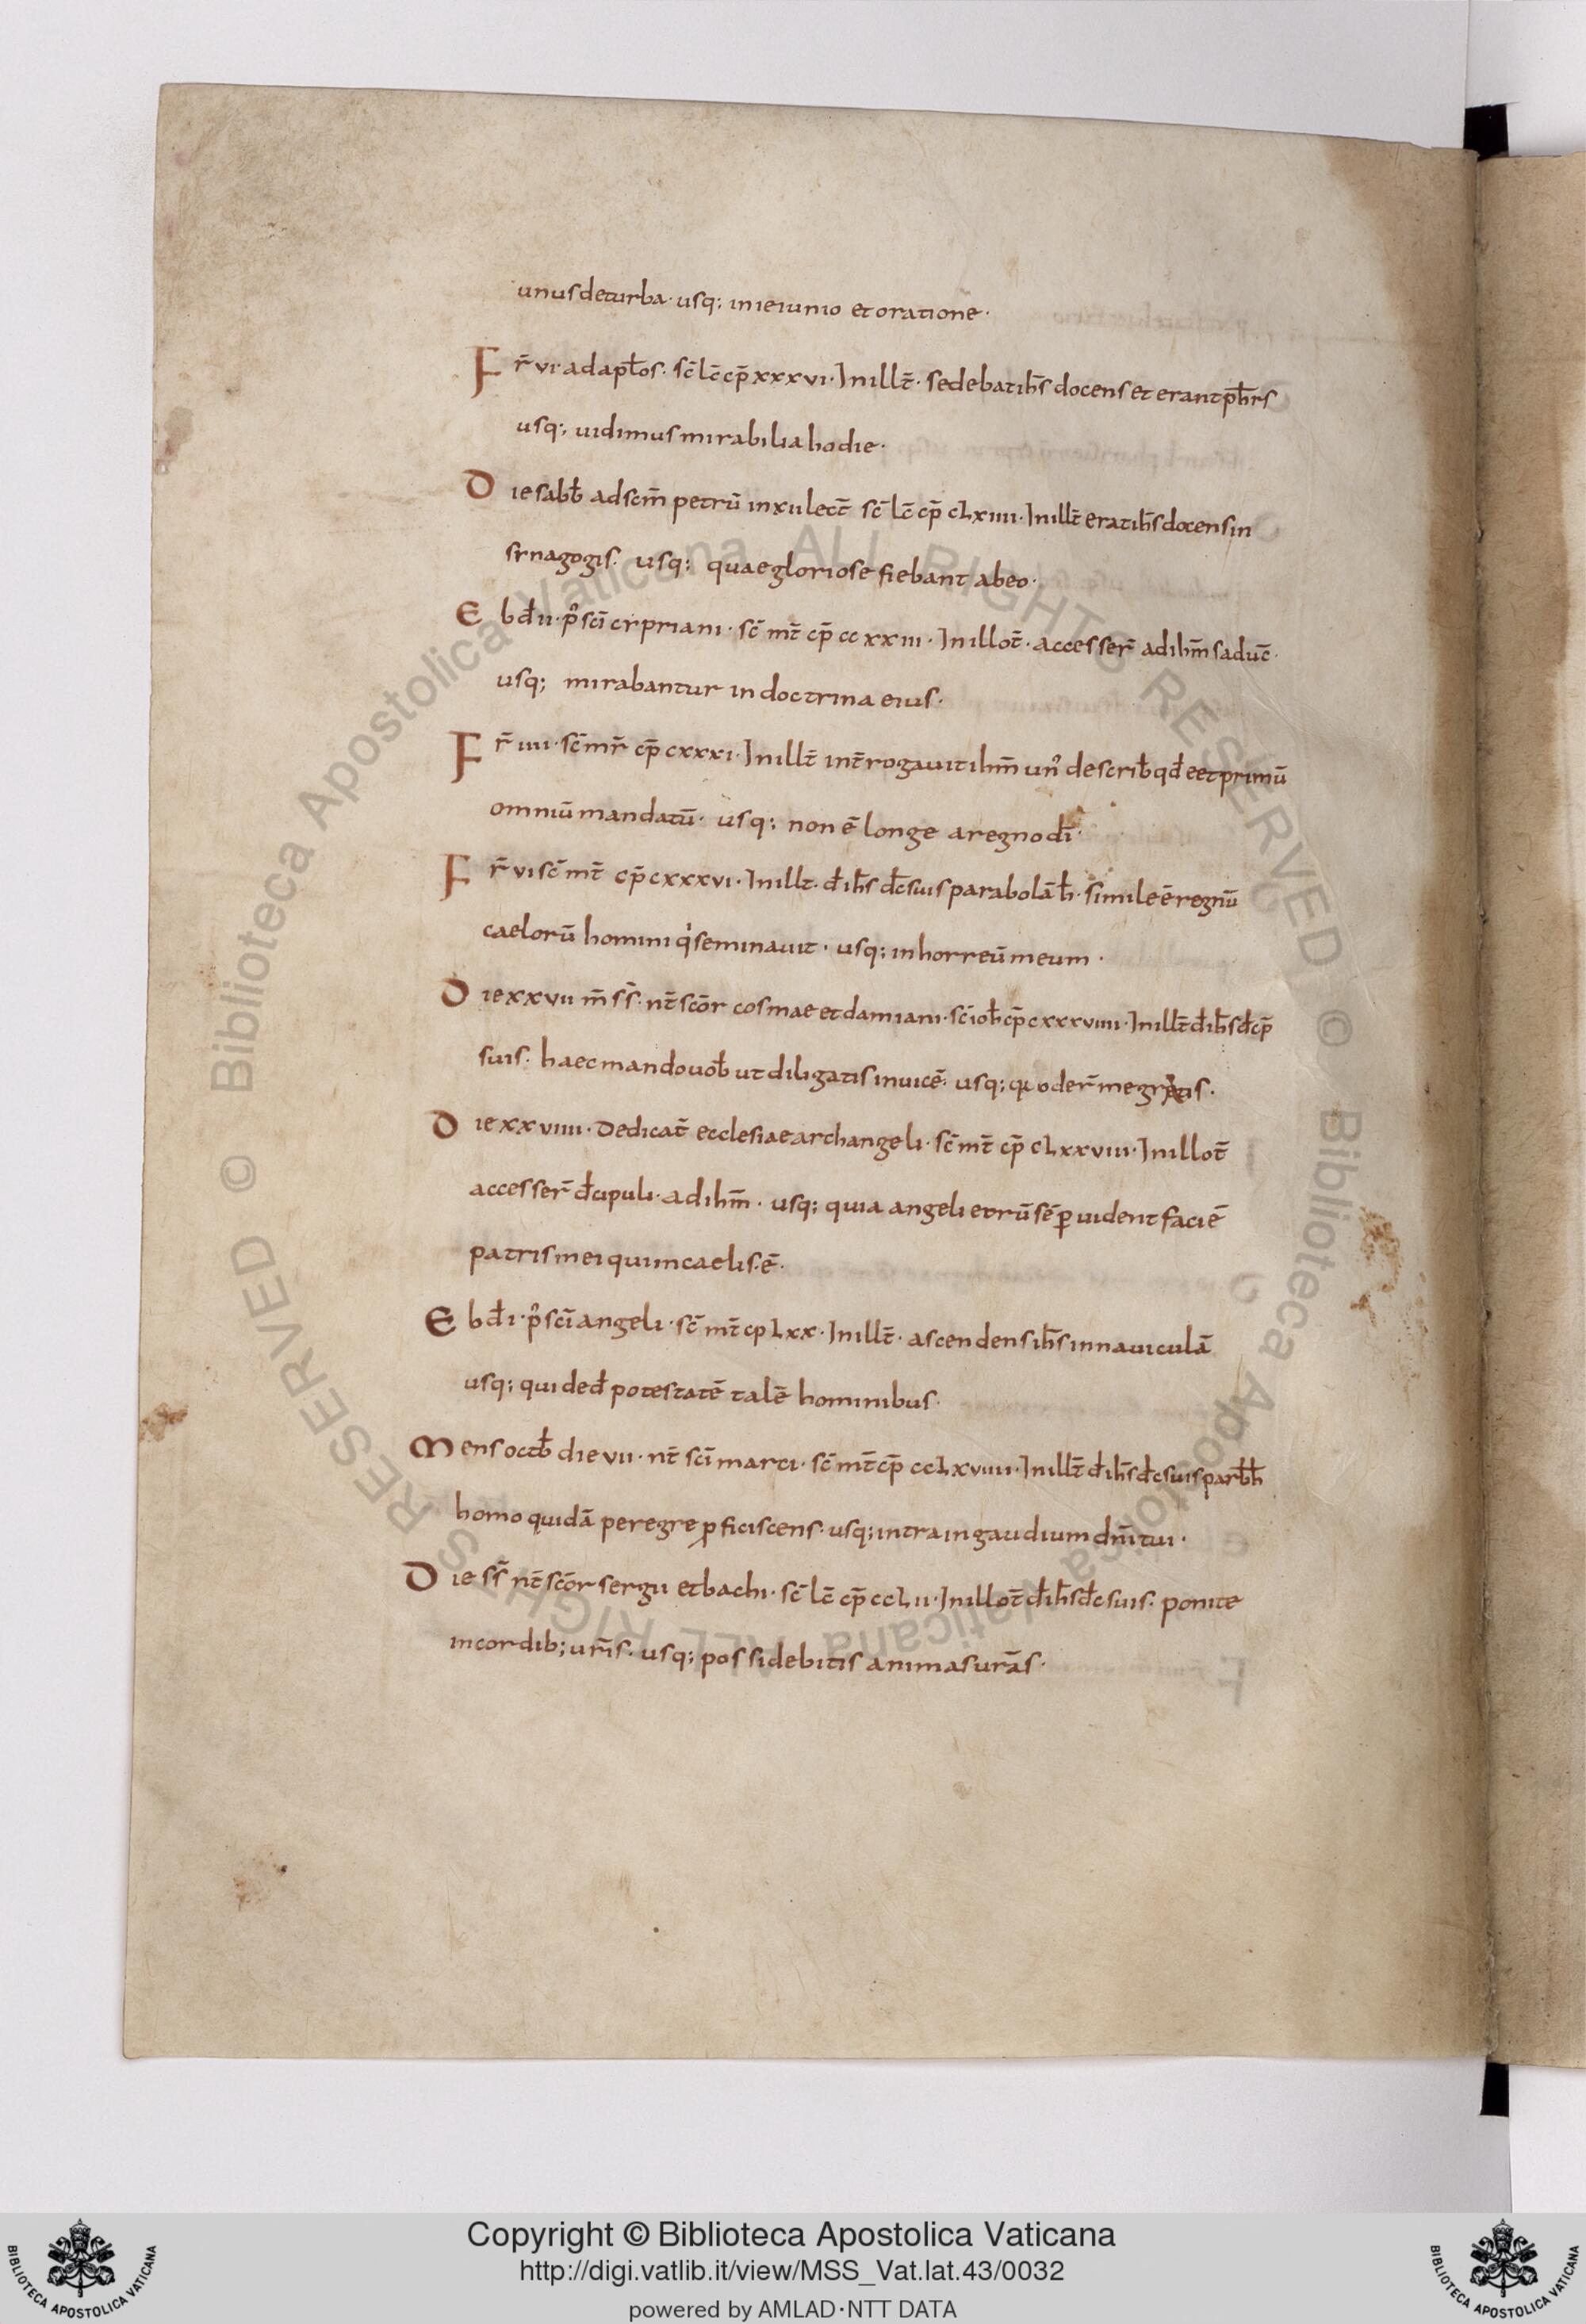 unus de turba· usq; in ieiunio et oratione·
Fr̄ vi ad apłos· sc̄ lc̄ cp̄ xxxvi· In illt̄· sedebat ih̄s docens et erant ph̄rs
usq; uidimus mirabilia hodie·
Die sabb̄ ad scm̄ petrū in xii lect̄ sc̄ lc̄ cp̄ clxiiii· In illt̄ erat ih̄s docens in
synagogis· usq; quae gloriose fiebant ab eo·
Ebd̄ ii· p̄ sci cypriani· sc̄ mt̄ cp̄ ccxxiii· In illot̄· accesser̄ ad ihm̄ saduc̄·
usq; mirabantur in doctrina eius·
Fr̄ iiii· sc̄ mr̄ cp̄ cxxxi· In illt̄ int̄rogauit ihm̄ un' de scrib̄ qd̄ eet primū
omniū mandatū· usq; non ē longe a regno dī·
Fr̄ vi sc̄ mt̄ cp̄ cxxxvi· In illt· d̄ ih̄s dc̄suis parabolā h̄· simile ē regnū
caelorū homini q̇ seminauit· usq; in horreū meum·
Die xxvii m̄ s̄s̄· nt̄ scōr cosmae et damiani· sc̄ ioh̄ cp̄ cxxxviiii· In illt̄ d̄ ih̄s dc̄p̄
suis· haec mando uob̄ ut diligatis inuicē· usq; oder̄ me gratis·
Die xxviiii· Dedicat̄ ecclesiae archangeli· sc̄ mt̄ cp̄ clxxviii· In illot̄
accesser̄ dc̄ipuli· ad ihm̄· usq; quia angeli eorū sēp uident faciē
patris mei qui in caelis· ē·
Ebd̄ i· p̄ sci angeli· sc̄ mt̄ cp lxx· In illt̄· ascendens ih̄s in nauiculā
usq; qui ded̄ potestatē talē hominibus·
Mens octb̄ die vii· nt̄ sci marci· sc̄ mt̄ cp̄ cclxviiii· In illt̄ d̄ ih̄s dc̄suis parb̄ h̄
homo quidā peregre pficiscens· usq; intra in gaudium dnī tui·
Die s̄s̄ nt̄ scōr sergii et bachi· sc̄ lc̄ cp̄ cclii· In illot̄ d̄ ih̄s dc̄ suis· ponite
in cordib; urīs· usq; possidebitis animas urās·
© Biblioteca Apostolica Vaticana ALL RIGHTS RESERVED © Biblioteca Apostolica Vaticana ALL RIGHTS RESERVED
Copyright © Biblioteca Apostolica Vaticana
http://digi.vatlib.it/view/MSS_Vat.lat.43/0032
powered by AMLAD·NTT DATA
BIBLIOTECA APOSTOLICA VATICANA
BIBLIOTECA APOSTOLICA VATICANA